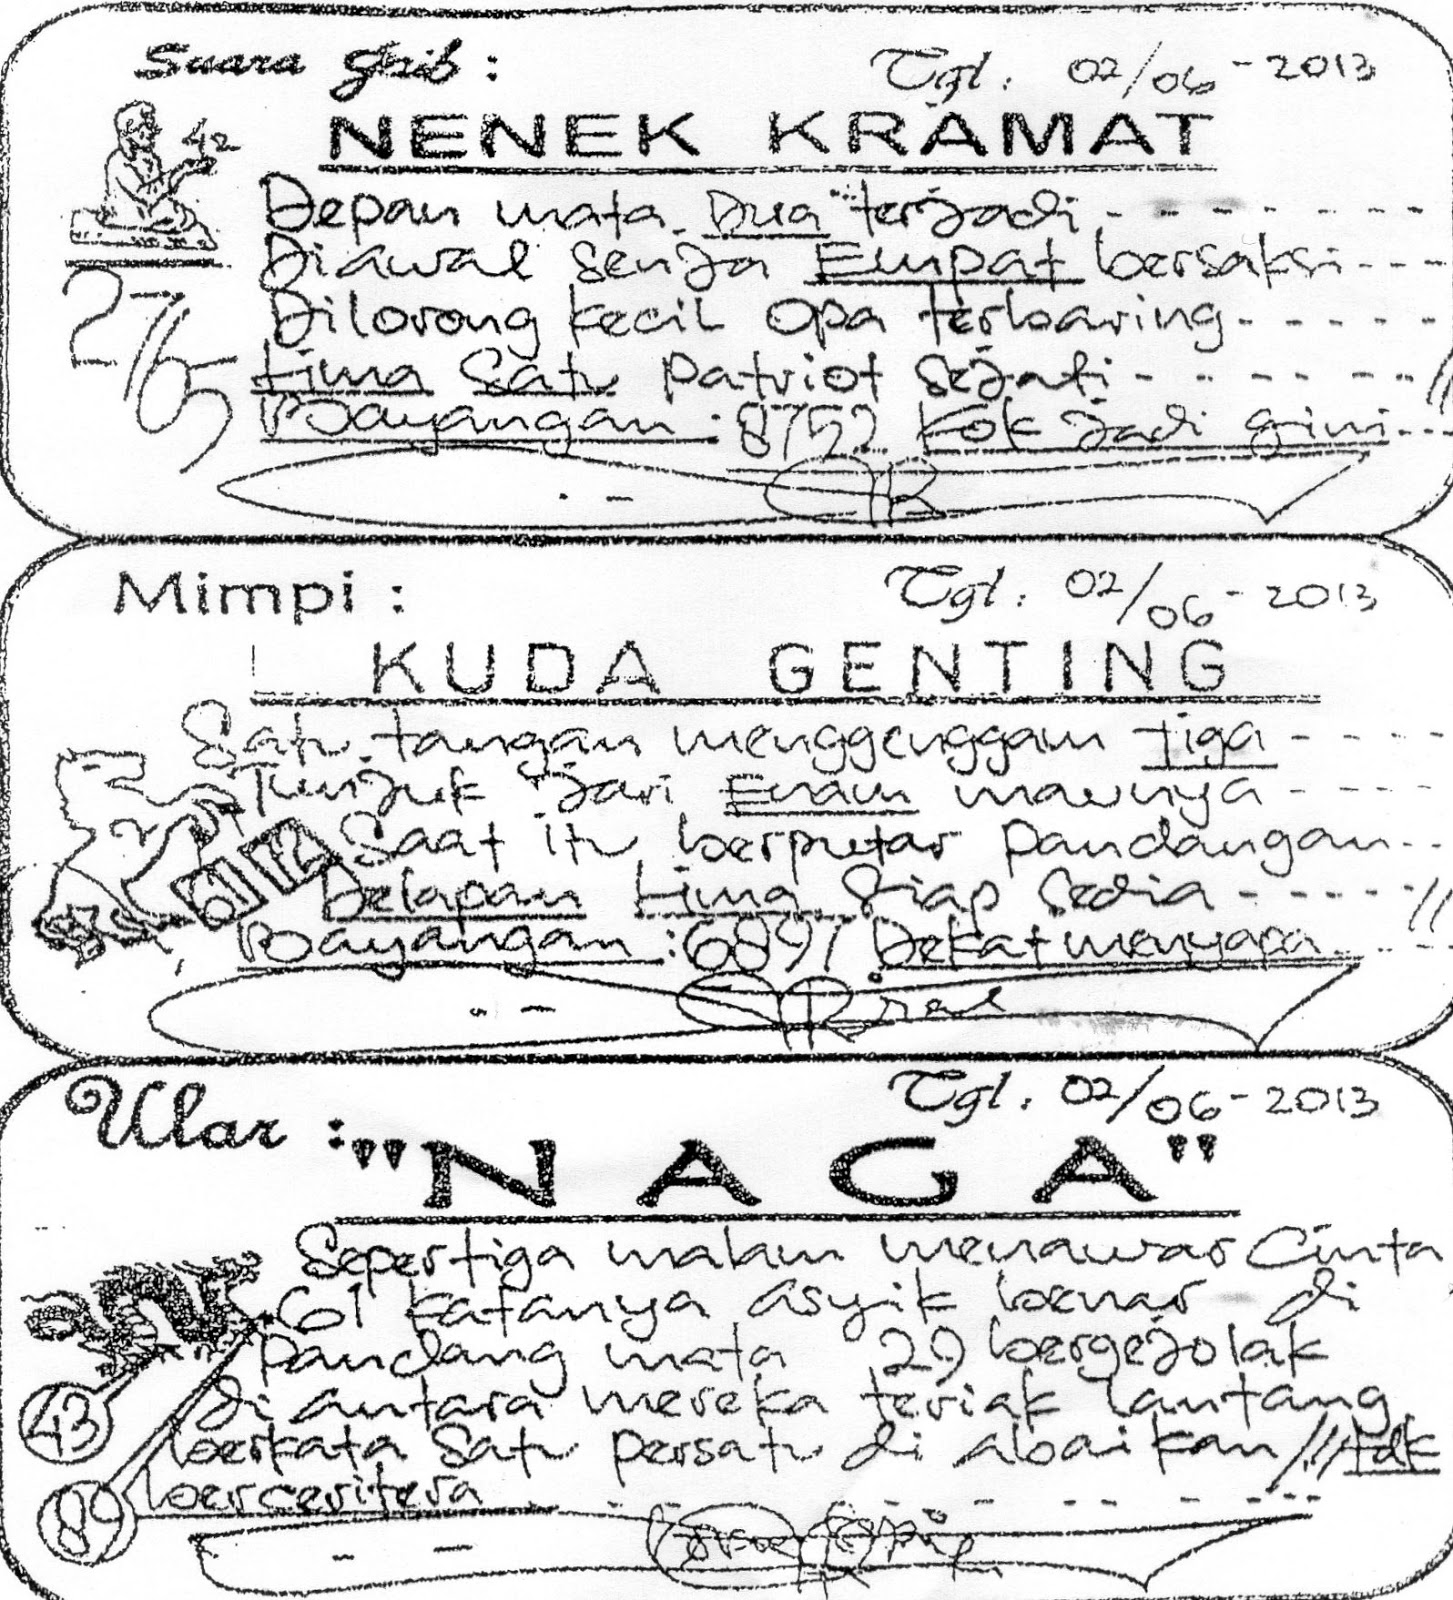 Suara Gaib :
Tgl : 02/06-2013
NENEK KRAMAT
42
Depan mata Dua terjadi - - - - - - -
Diawal senja Empat bersaksi - - - -
Dilorong kecil Opa terbaring - - - - -
Lima Satu patriot sejati - - - - - - //
Bayangan : 8752 Kok jadi gini - - -
276
Mimpi :
Tgl : 02/06-2013
KUDA GENTING
Satu tangan menggenggam tiga - - - -
Tunjuk jari Enam maunya - - - -
Saat itu berputar pandangan - -
61 72
Delapan Lima Siap sedia - - - - - //
Bayangan : 6897 Dekat menyapa - - -
Ular :
Tgl : 02/06-2013
"NAGA"
Sepertiga malam menawar Cinta
61 katanya asyik benar di
pandang mata 29 bergejolak
di antara mereka teriak lantang
43
berkata Satu persatu di abaikan //.// tdk
berceritera - - - - - - - -
89